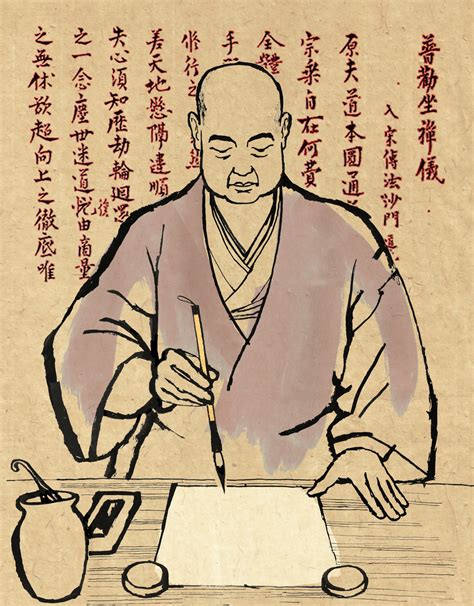 普勸坐禪儀
入宋傳法沙門道
原夫道本圓通
宗乘自在何費
全體
手
修行之
差天地懸隔違順
失心須知歷劫輪迴還
之一念塵世迷道復由商量
之無休欲超向上之徹底唯